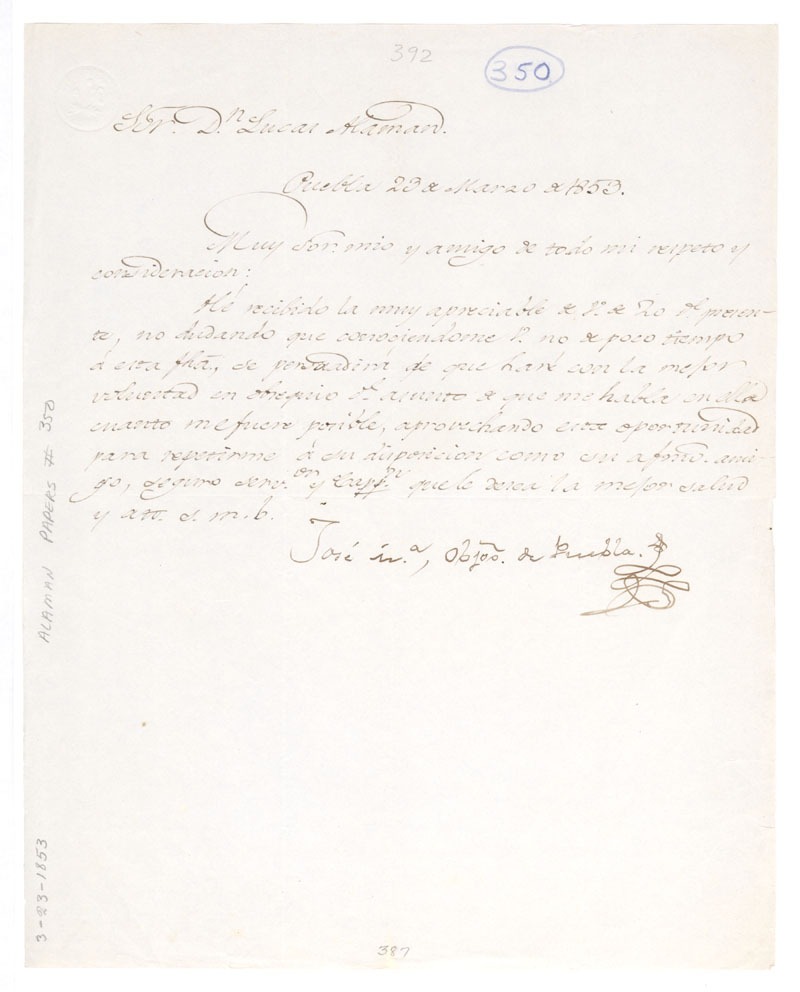 392
350
Sor. Dn. Lucas Alaman.
Puebla 23 de Marzo de 1853.
Muy Sor. mio y amigo de todo mi respeto y
consideracion:
Hé recibido la muy apreciable de V. de 20 del presen-
te, no dudando que conociendome V. no de poco tiempo
á esta fha., se persuadirá de que haré con la mejor
voluntad en obsequio del asunto de que me habla en ella
cuanto me fuere posible, aprovechando esta oportunidad
para repetirme á su disposicion como su afmo. ami-
go, seguro serv.or y Capp.n que le desea la mejor salud
y att. s. m. b.
José M.a, Obpo. de Puebla.
ALAMAN PAPERS # 350
3-23-1853
387